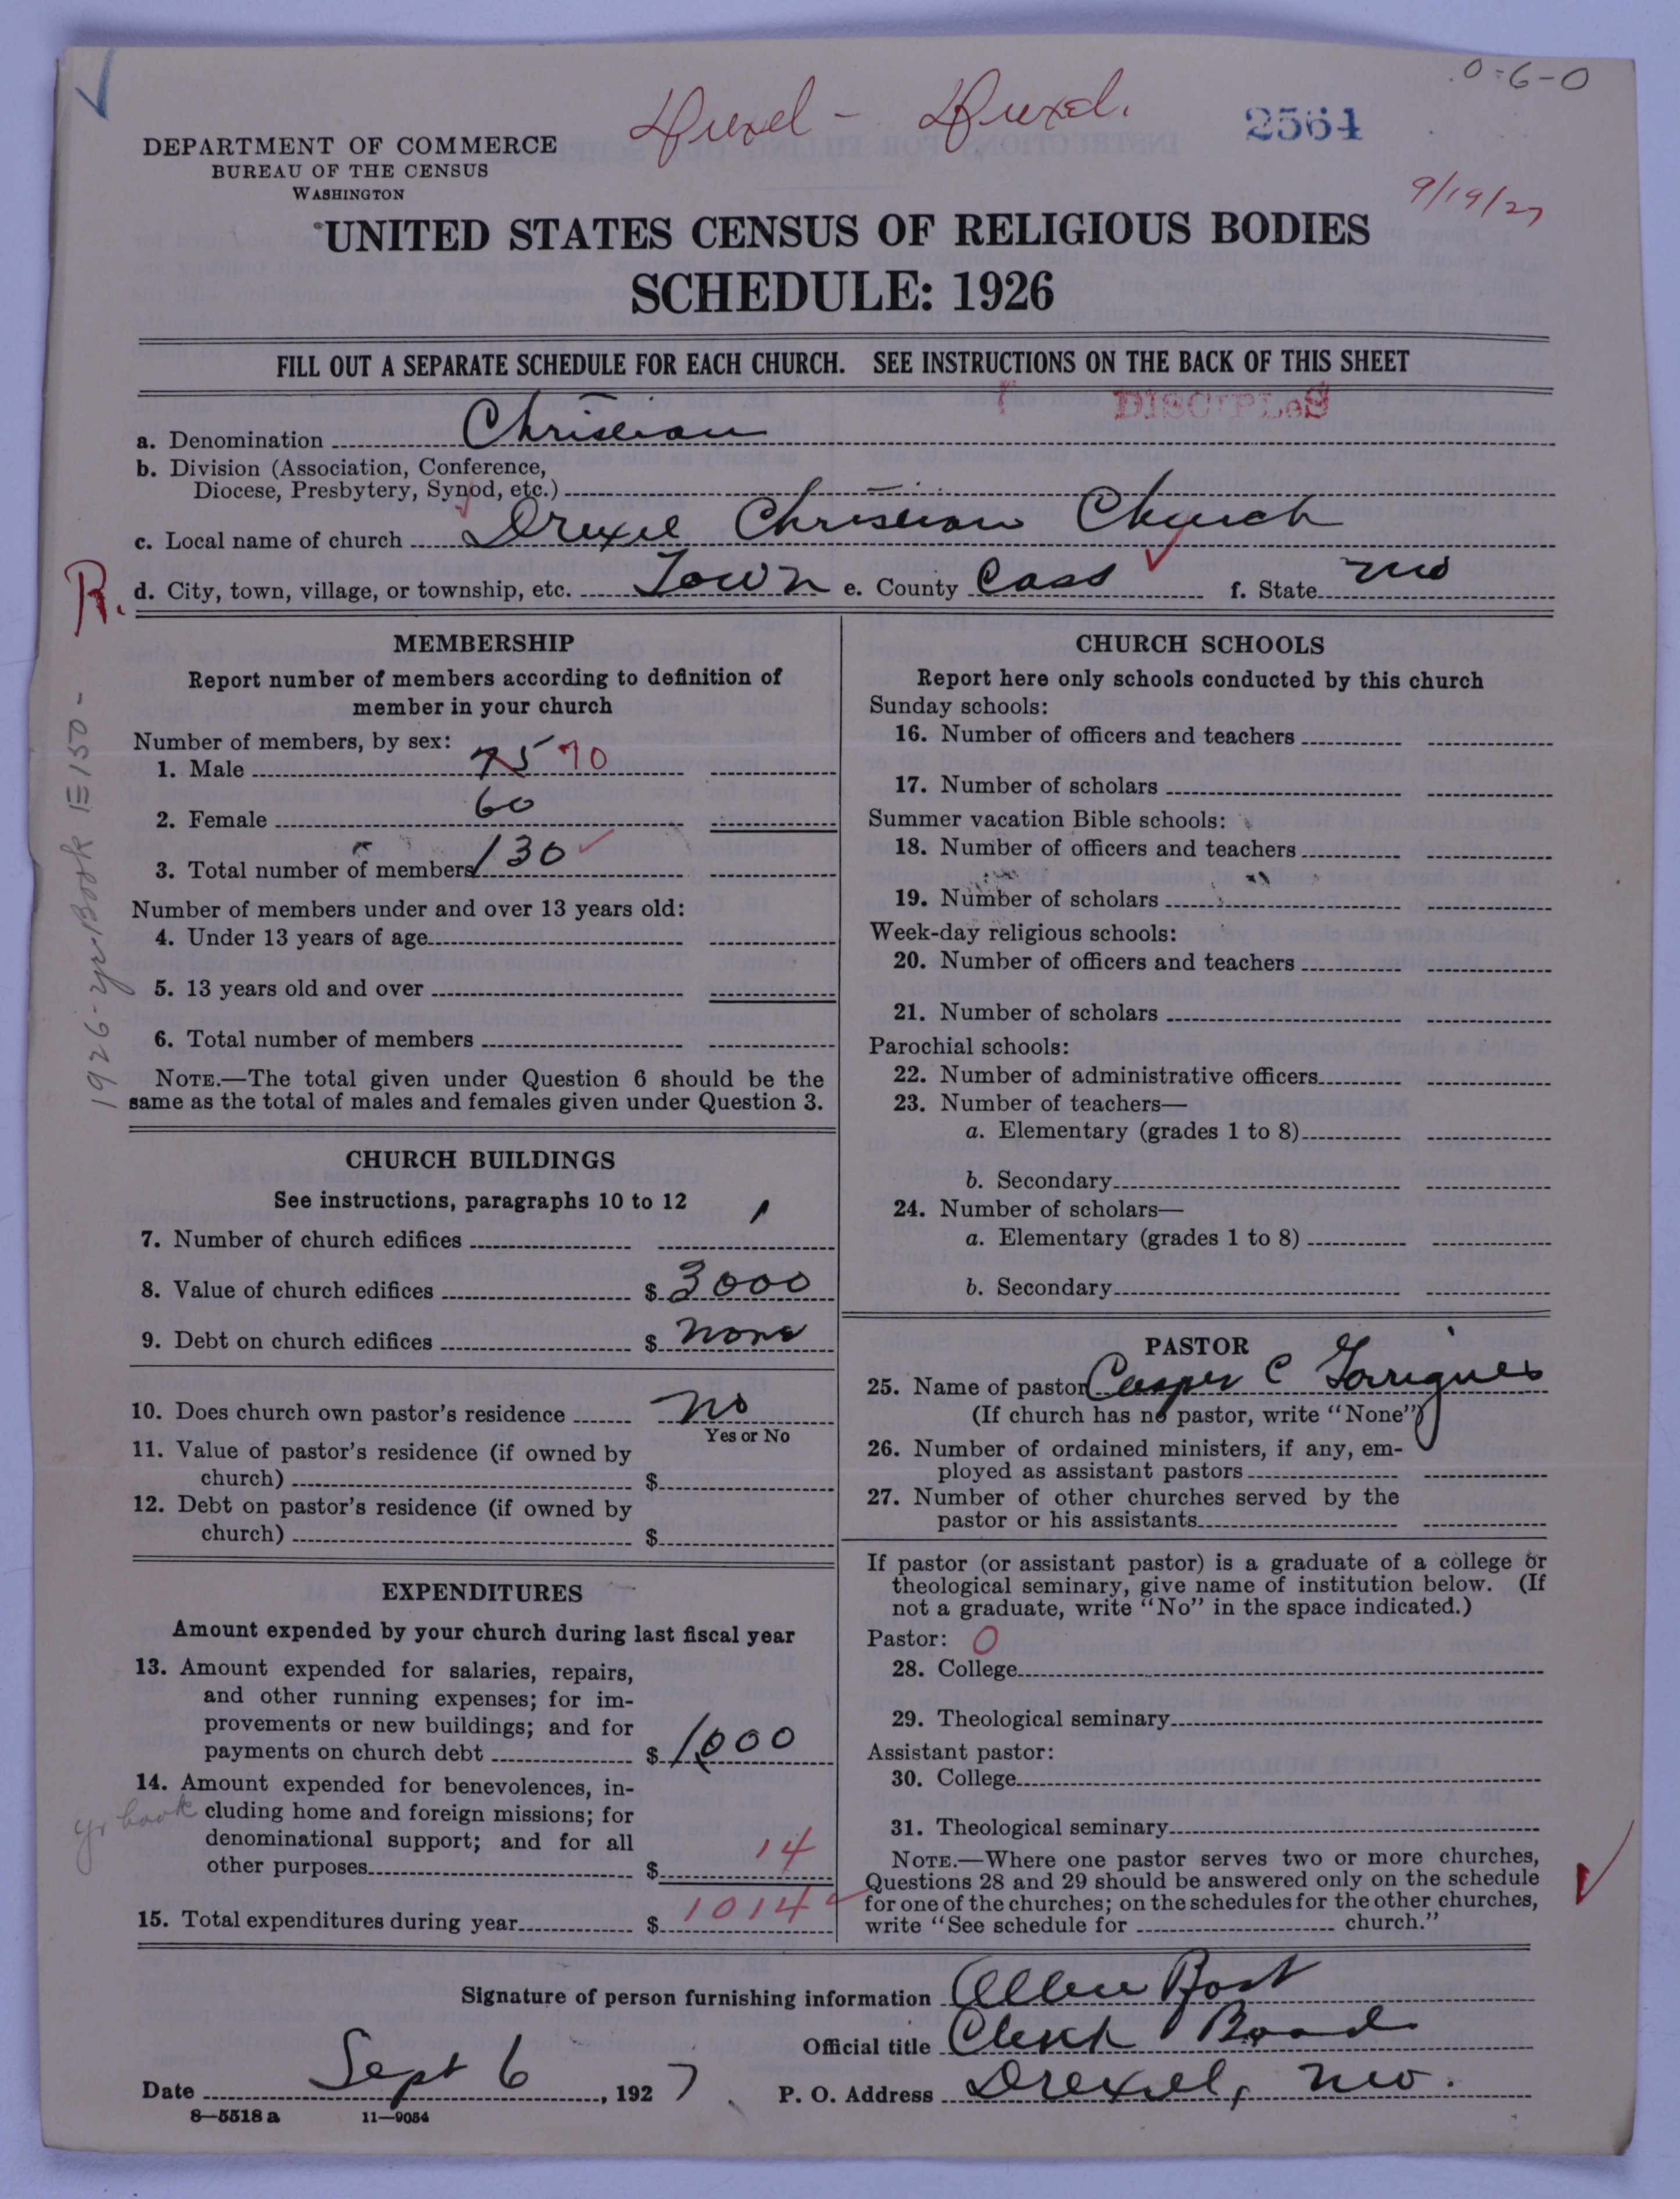 0-6-0
Drexel - Drexel.
2564
DEPARTMENT OF COMMERCE
BUREAU OF THE CENSUS
WASHINGTON
9/19/27
UNITED STATES CENSUS OF RELIGIOUS BODIES
SCHEDULE: 1926
FILL OUT A SEPARATE SCHEDULE FOR EACH CHURCH. SEE INSTRUCTIONS ON THE BACK OF THIS SHEET
DISCIPLeS
a. Denomination Christian
b. Division (Association, Conference,
Diocese, Presbytery, Synod, etc.)
c. Local name of church Drexel Christian Church
R.
d. City, town, village, or township, etc. Town e. County Cass f. State Mo
MEMBERSHIP
Report number of members according to definition of
member in your church
Number of members, by sex:
1. Male 75 70
2. Female 60
3. Total number of members 130
Number of members under and over 13 years old:
4. Under 13 years of age
5. 13 years old and over
6. Total number of members
NOTE.—The total given under Question 6 should be the
same as the total of males and females given under Question 3.
1926-yr Book 150-
CHURCH BUILDINGS
See instructions, paragraphs 10 to 12
7. Number of church edifices 1
8. Value of church edifices $ 3000
9. Debt on church edifices $ none
10. Does church own pastor's residence no
Yes or No
11. Value of pastor's residence (if owned by
church) $
12. Debt on pastor's residence (if owned by
church) $
EXPENDITURES
Amount expended by your church during last fiscal year
13. Amount expended for salaries, repairs,
and other running expenses; for im-
provements or new buildings; and for
payments on church debt $ 1000
14. Amount expended for benevolences, in-
yr book cluding home and foreign missions; for
denominational support; and for all
other purposes $ 14
15. Total expenditures during year $ 1014
CHURCH SCHOOLS
Report here only schools conducted by this church
Sunday schools:
16. Number of officers and teachers
17. Number of scholars
Summer vacation Bible schools:
18. Number of officers and teachers
19. Number of scholars
Week-day religious schools:
20. Number of officers and teachers
21. Number of scholars
Parochial schools:
22. Number of administrative officers
23. Number of teachers—
a. Elementary (grades 1 to 8)
b. Secondary
24. Number of scholars—
a. Elementary (grades 1 to 8)
b. Secondary
PASTOR
25. Name of pastor Casper C Garrigues
(If church has no pastor, write "None")
26. Number of ordained ministers, if any, em-
ployed as assistant pastors
27. Number of other churches served by the
pastor or his assistants
If pastor (or assistant pastor) is a graduate of a college or
theological seminary, give name of institution below. (If
not a graduate, write "No" in the space indicated.)
Pastor: 0
28. College
29. Theological seminary
Assistant pastor:
30. College
31. Theological seminary
NOTE.—Where one pastor serves two or more churches,
Questions 28 and 29 should be answered only on the schedule
for one of the churches; on the schedules for the other churches,
write "See schedule for church."
Signature of person furnishing information Allen Bost
Official title Clerk Board
Date Sept 6, 1927 P. O. Address Drexel, Mo.
8—5518 a 11—9054